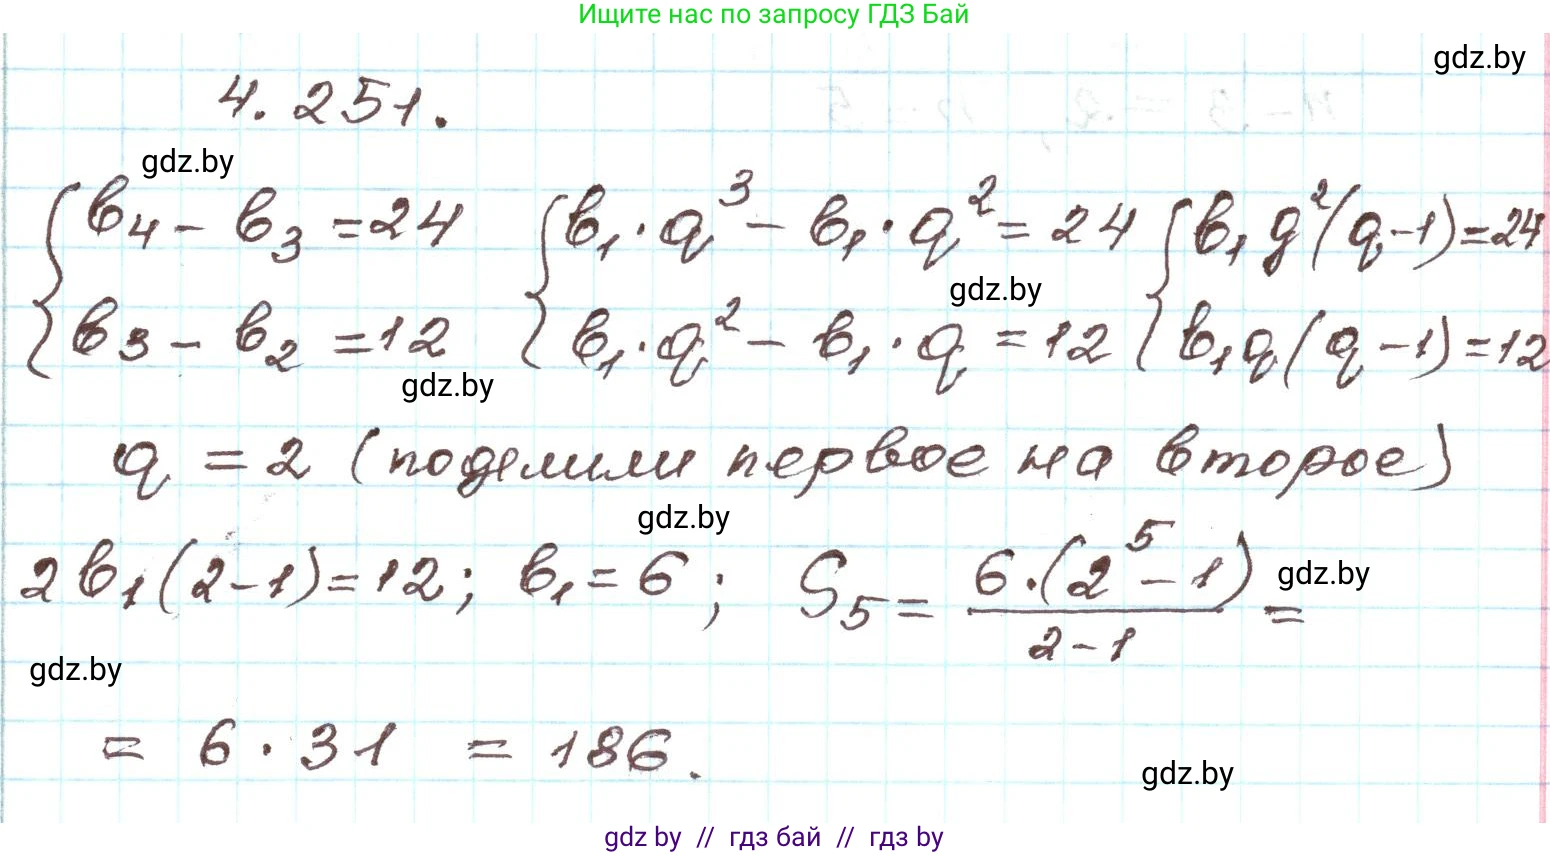 Ищите нас по запросу ГДЗ Бай
gdz.by
4.251.
gdz.by
{ b₄ - b₃ = 24 { b₁ · q³ - b₁ · q² = 24 { b₁q²(q-1)=24
gdz.by
{ b₃ - b₂ = 12 { b₁ · q² - b₁ · q = 12 { b₁q(q-1)=12
gdz.by
q = 2 (поделили первое на второе)
gdz.by
2b₁(2-1)=12; b₁=6; S₅ = 6·(2⁵-1) / 2-1 =
gdz.by
gdz.by
= 6 · 31 = 186.
gdz.by
gdz by // гдз бай // гдз by